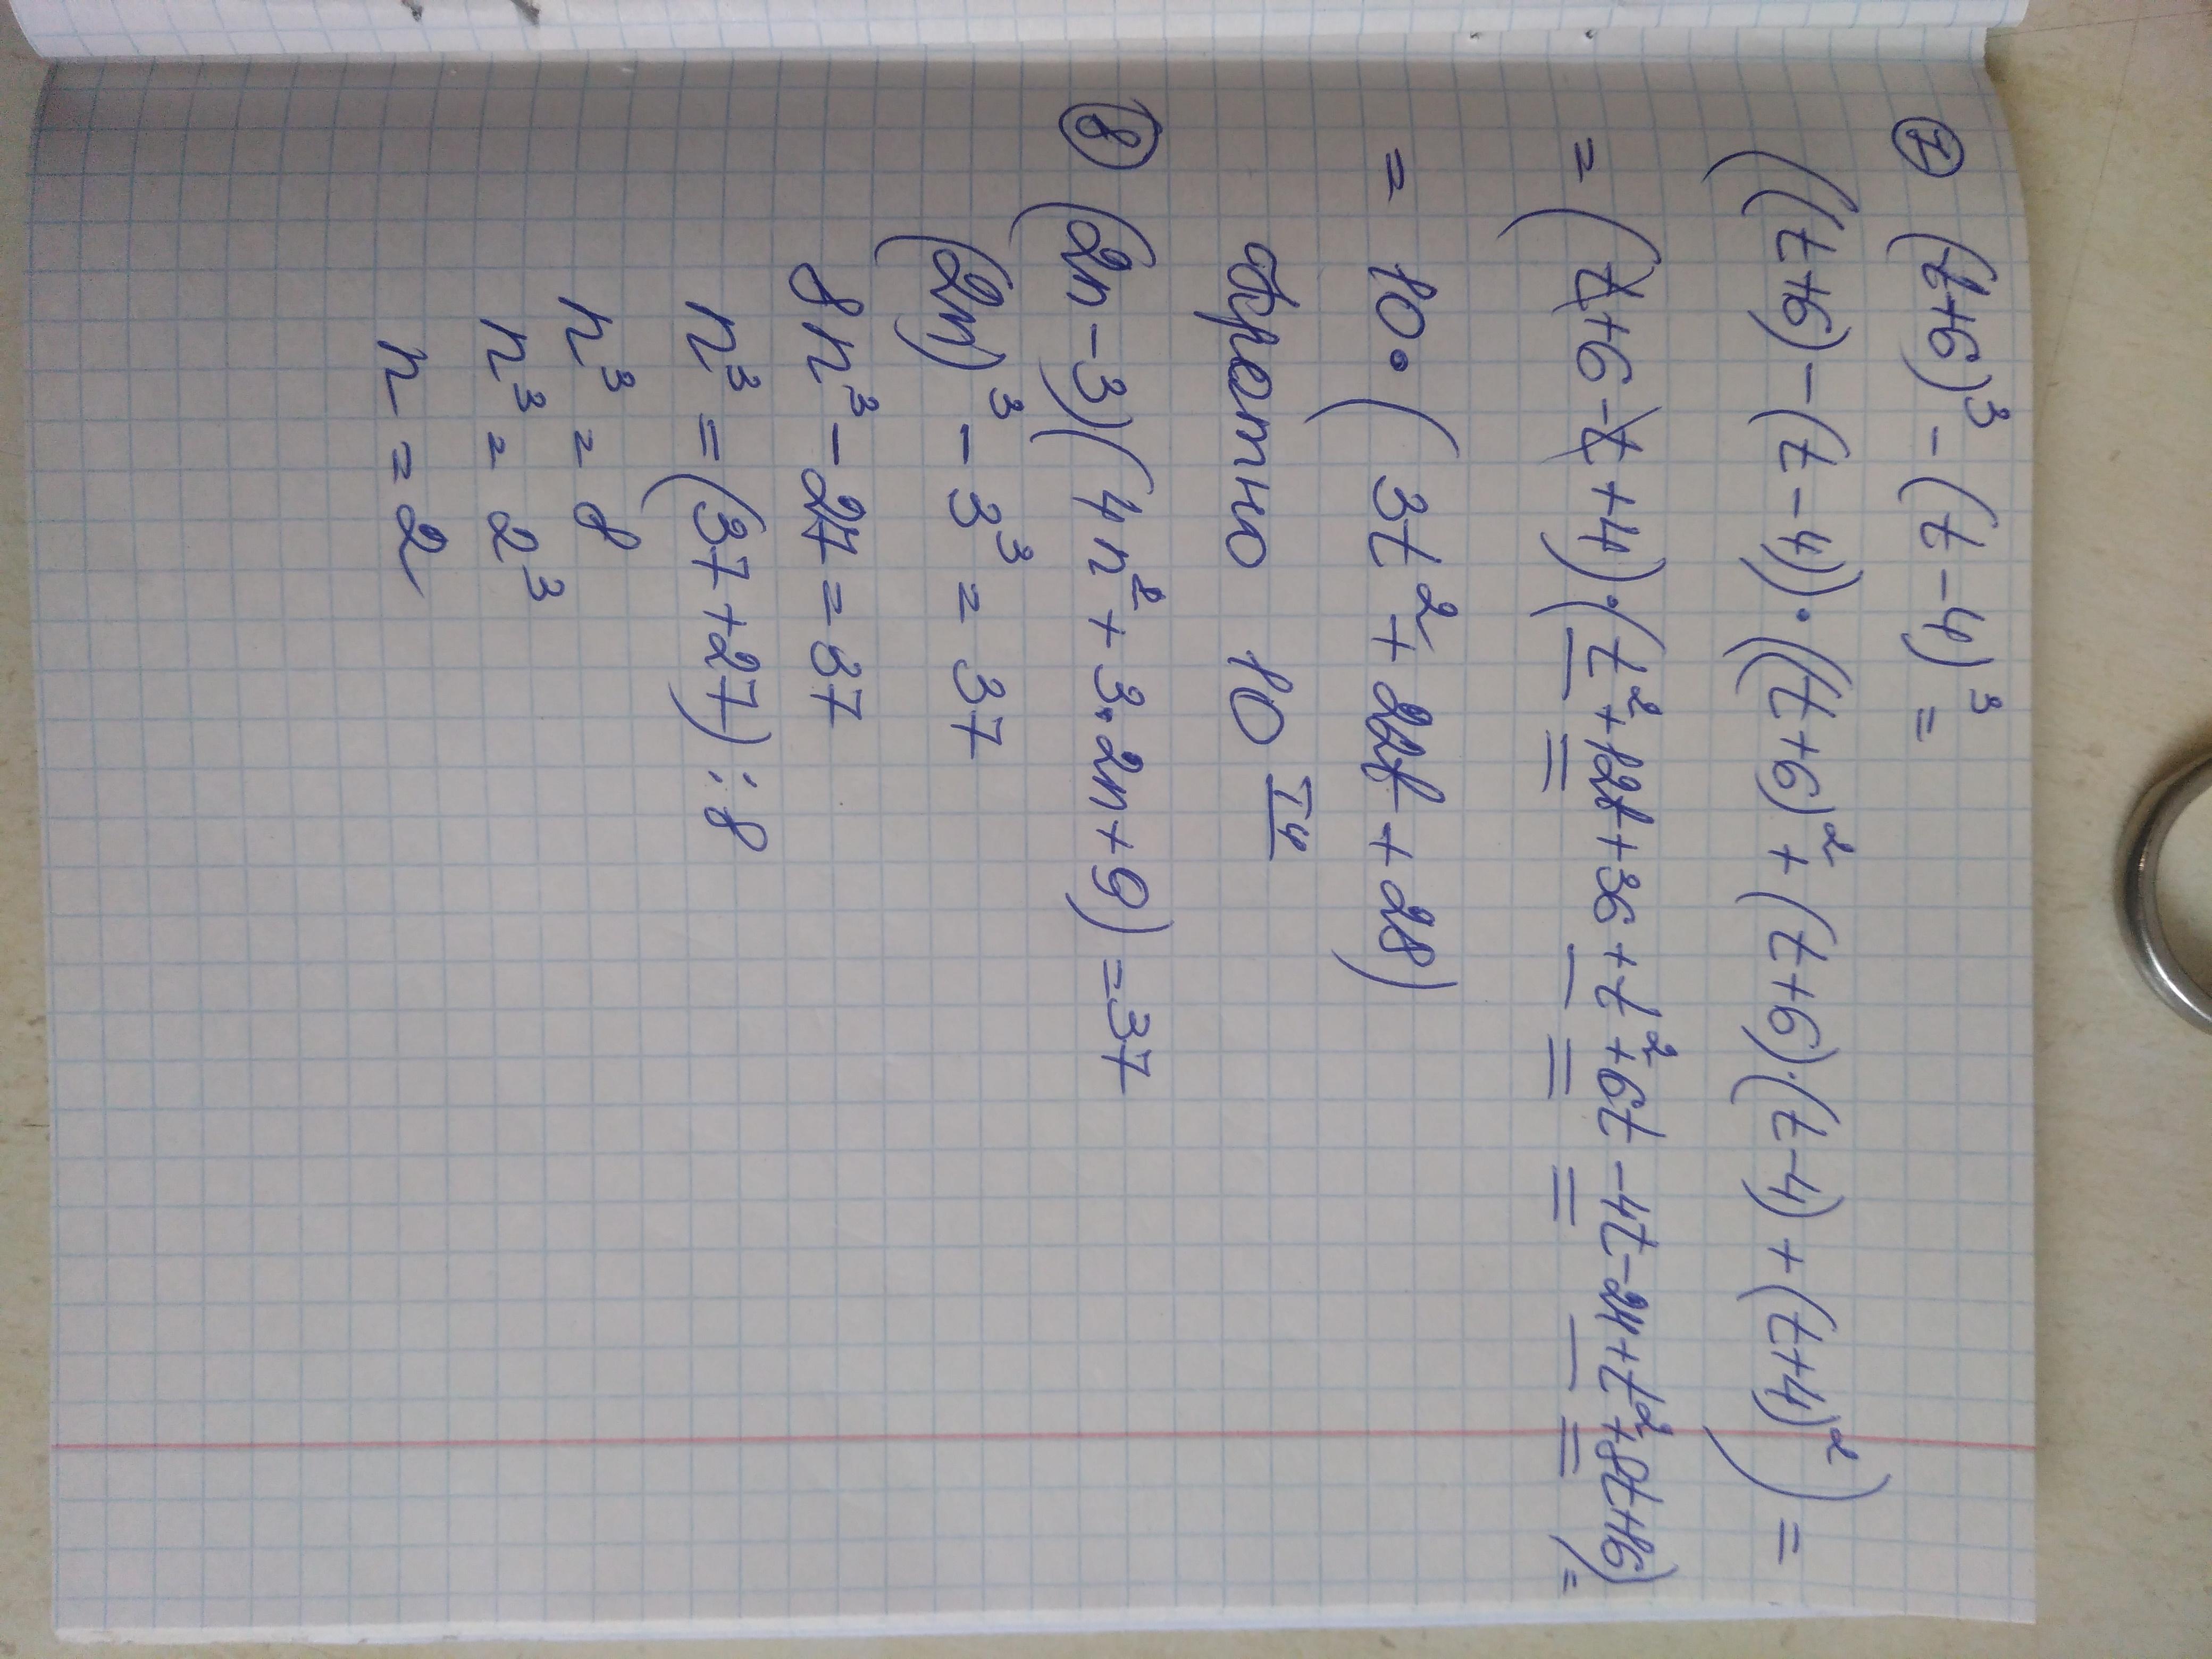 ⑦ (t+6)³ - (t-4)³ =
((t+6) - (t-4))·((t+6)² + (t+6)·(t-4) + (t+4)²) =
= (t+6-t+4)·(t²+12t+36+t²+6t-4t-24+t²+8t+16) =
= 10·(3t²+22t+28)
кратно 10 тч
⑧ (2n-3)(4n²+3·2n+9)=37
(2n)³ - 3³ = 37
8n³ - 27 = 37
n³ = (37+27):8
n³ = 8
n³ = 2³
n = 2